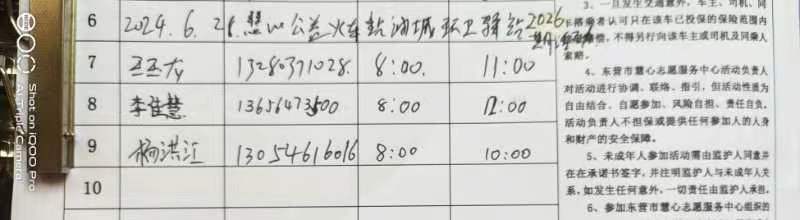 6 2024.6.21. 慧心公益火车站油城环卫驿站 2026
7 王玉龙 13280371028. 8:00. 11:00
8 李佳慧 13656473500 8:00 12:00
9 杨洪江 13054616016 8:00 10:00
10
3、一旦发生交通意外,车主、司机、同
乘搭乘者认可只在该车已投保的保险范围内
赔偿,不得另行向该车主或司机及同乘人
索赔。
4、东营市慧心志愿服务中心活动负责人
对活动进行协调、联络、指引,但活动性质为
自由结合、自愿参加、风险自担、责任自负。
活动负责人不担保或提供任何参加人的人身
和财产的安全保障。
5、未成年人参加活动需由监护人同意并
在在承诺书签字,并注明监护人与未成年人关
系,如发生任何意外,一切责任由监护人承担。
6、参加东营市慧心志愿服务中心组织的
Shot on iQOO Pro
AI Triple Camera